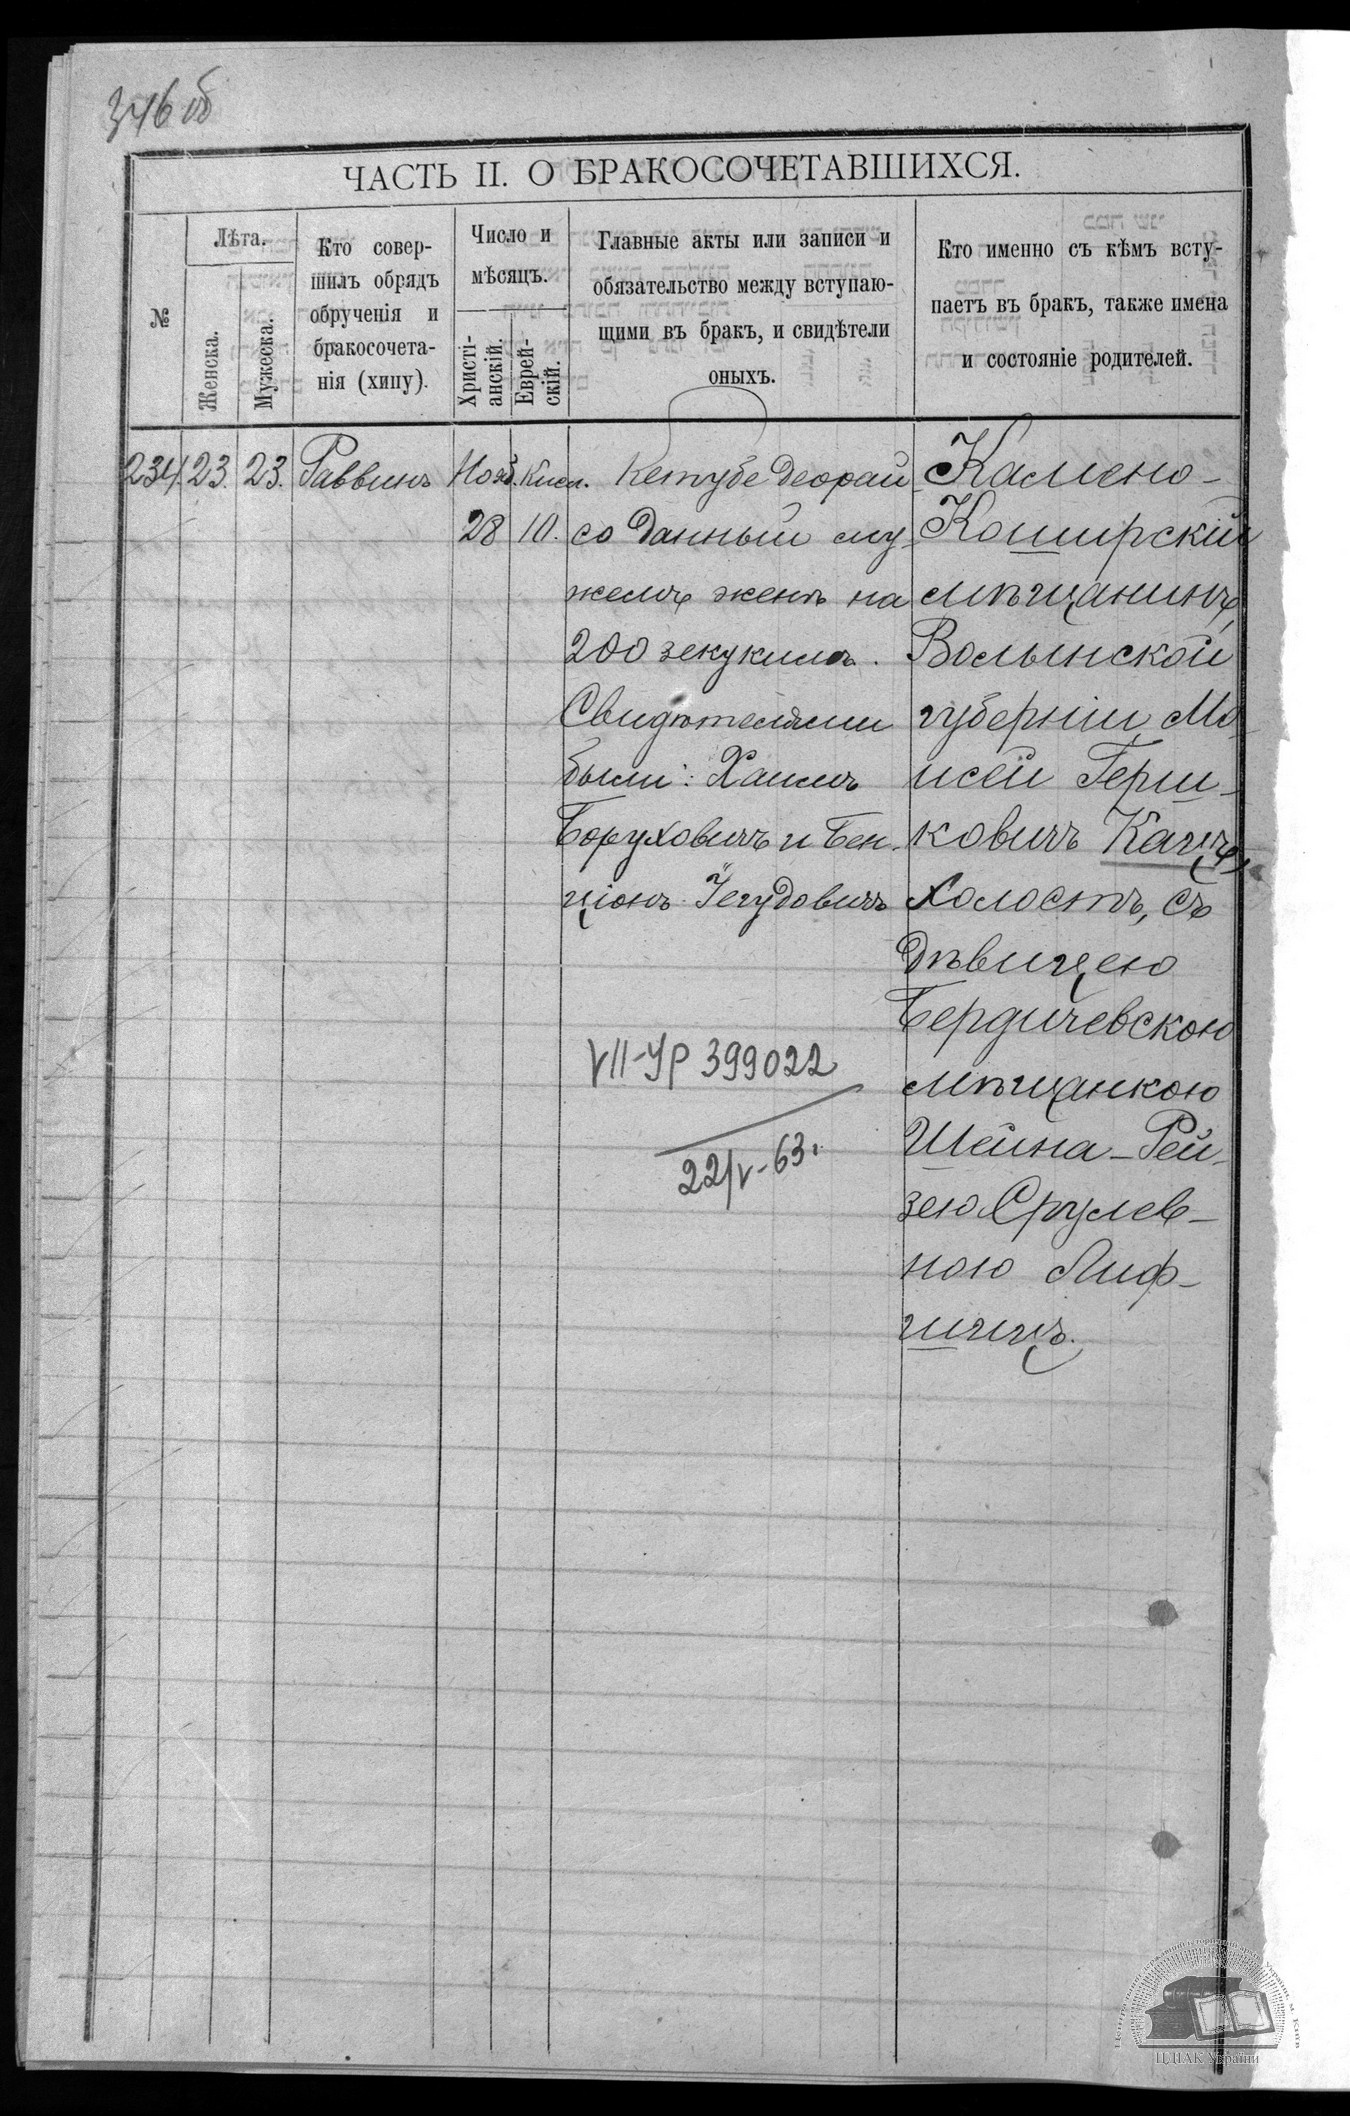 346 об
ЧАСТЬ II. О БРАКОСОЧЕТАВШИХСЯ.
№
Лѣта.
Женска.
Мужеска.
Кто совер-
шилъ обрядъ
обрученія и
бракосочета-
нія (хипу).
Число и
мѣсяцъ.
Христі-
анскій.
Еврей-
скій.
Главные акты или записи и
обязательство между вступаю-
щими въ бракъ, и свидѣтели
оныхъ.
Кто именно съ кѣмъ всту-
паетъ въ бракъ, также имена
и состояніе родителей.
234. 23. 23. Раввинъ Нояб. Кисл.
28 10.
Кетубе деорай
со данный му-
жемъ женѣ на
200 зекукимъ.
Свидѣтелями
были: Хаимъ
Боруховичъ и Бен-
ціонъ Іегудовичъ
Камено-
Коширскій
мѣщанинъ,
Волынской
губерніи, Мо-
исей Герш-
ковичъ Кацъ,
холостъ, съ
дѣвицею
Бердичевскою
мѣщанкою
Шейна-Рей-
зею Срулев-
ною Лиф-
шицъ.
VII-УР 399022
22/V-63.
ЦДІАК України